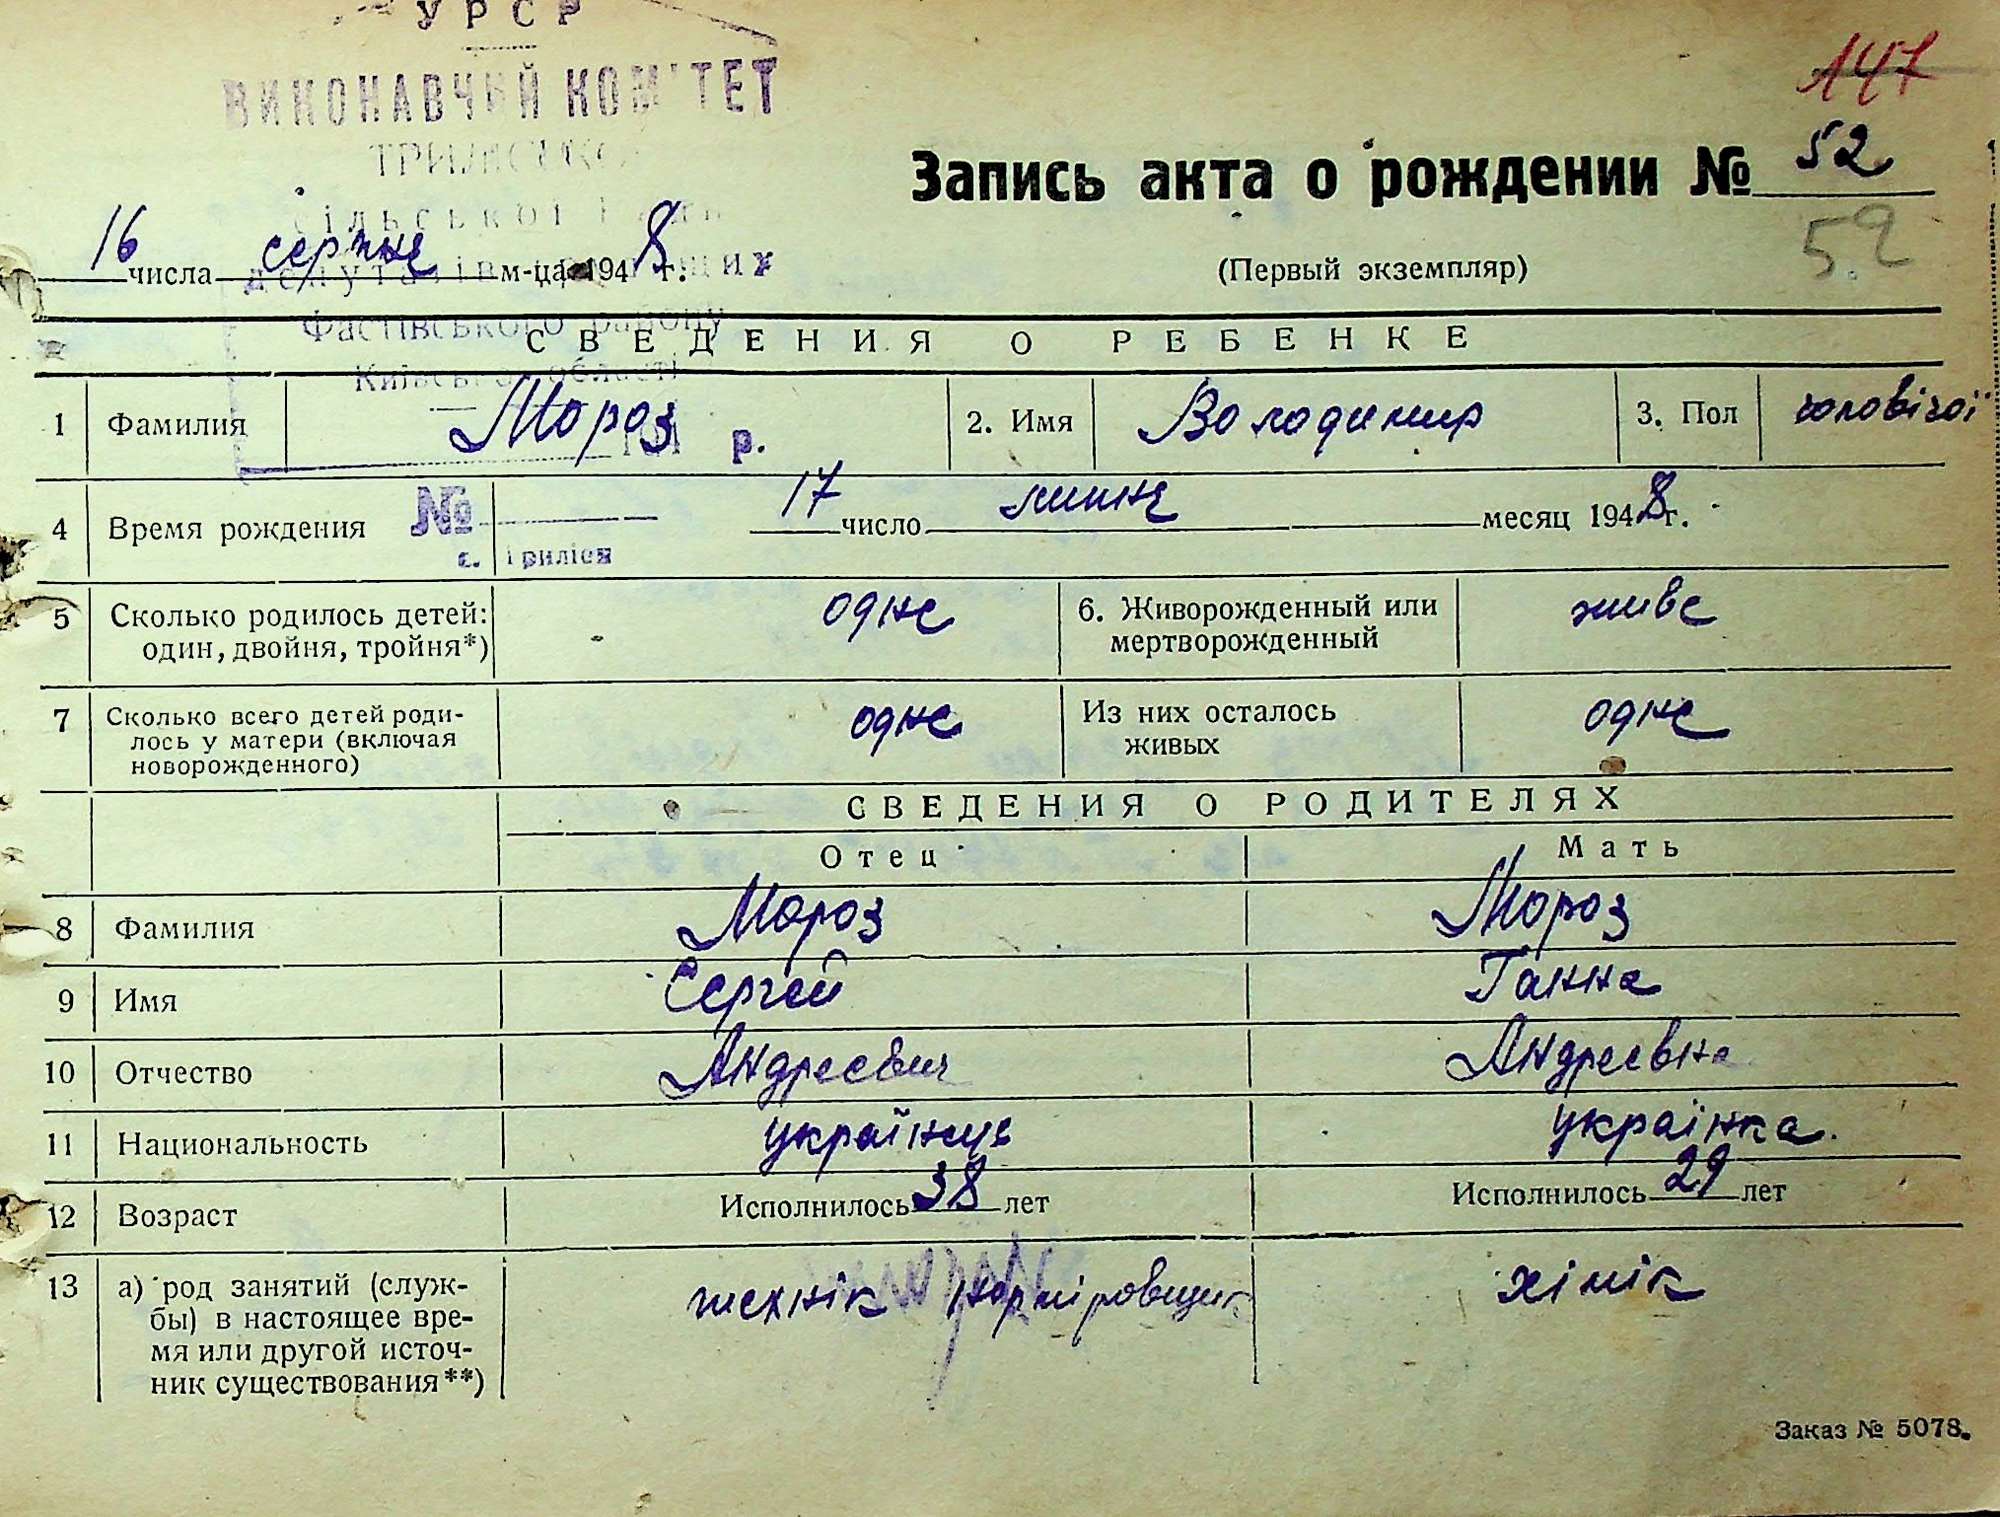 УРСР
ВИКОНАВЧИЙ КОМІТЕТ
147
Запись акта о рождении № 52
52
сільської
16 числа серпня м-ца 1948 г.
(Первый экземпляр)
Фастівського району
СВЕДЕНИЯ О РЕБЕНКЕ
Київської області
1 Фамилия Мороз 2. Имя Володимир 3. Пол чоловічої
р.
4 Время рождения 17 число липня месяц 1948 г.
№
с. Триліси
5 Сколько родилось детей: один, двойня, тройня*) одне 6. Живорожденный или мертворожденный живе
7 Сколько всего детей роди-
лось у матери (включая новорожденного) одне Из них осталось живых одне
СВЕДЕНИЯ О РОДИТЕЛЯХ
Отец Мать
8 Фамилия Мороз Мороз
9 Имя Сергей Ганна
10 Отчество Андреевич Андреевна
11 Национальность українець українка.
12 Возраст Исполнилось 38 лет Исполнилось 29 лет
13 а) род занятий (служ- технік нормировщик хімік
бы) в настоящее вре-
мя или другой источ-
ник существования**)
Заказ № 5078.